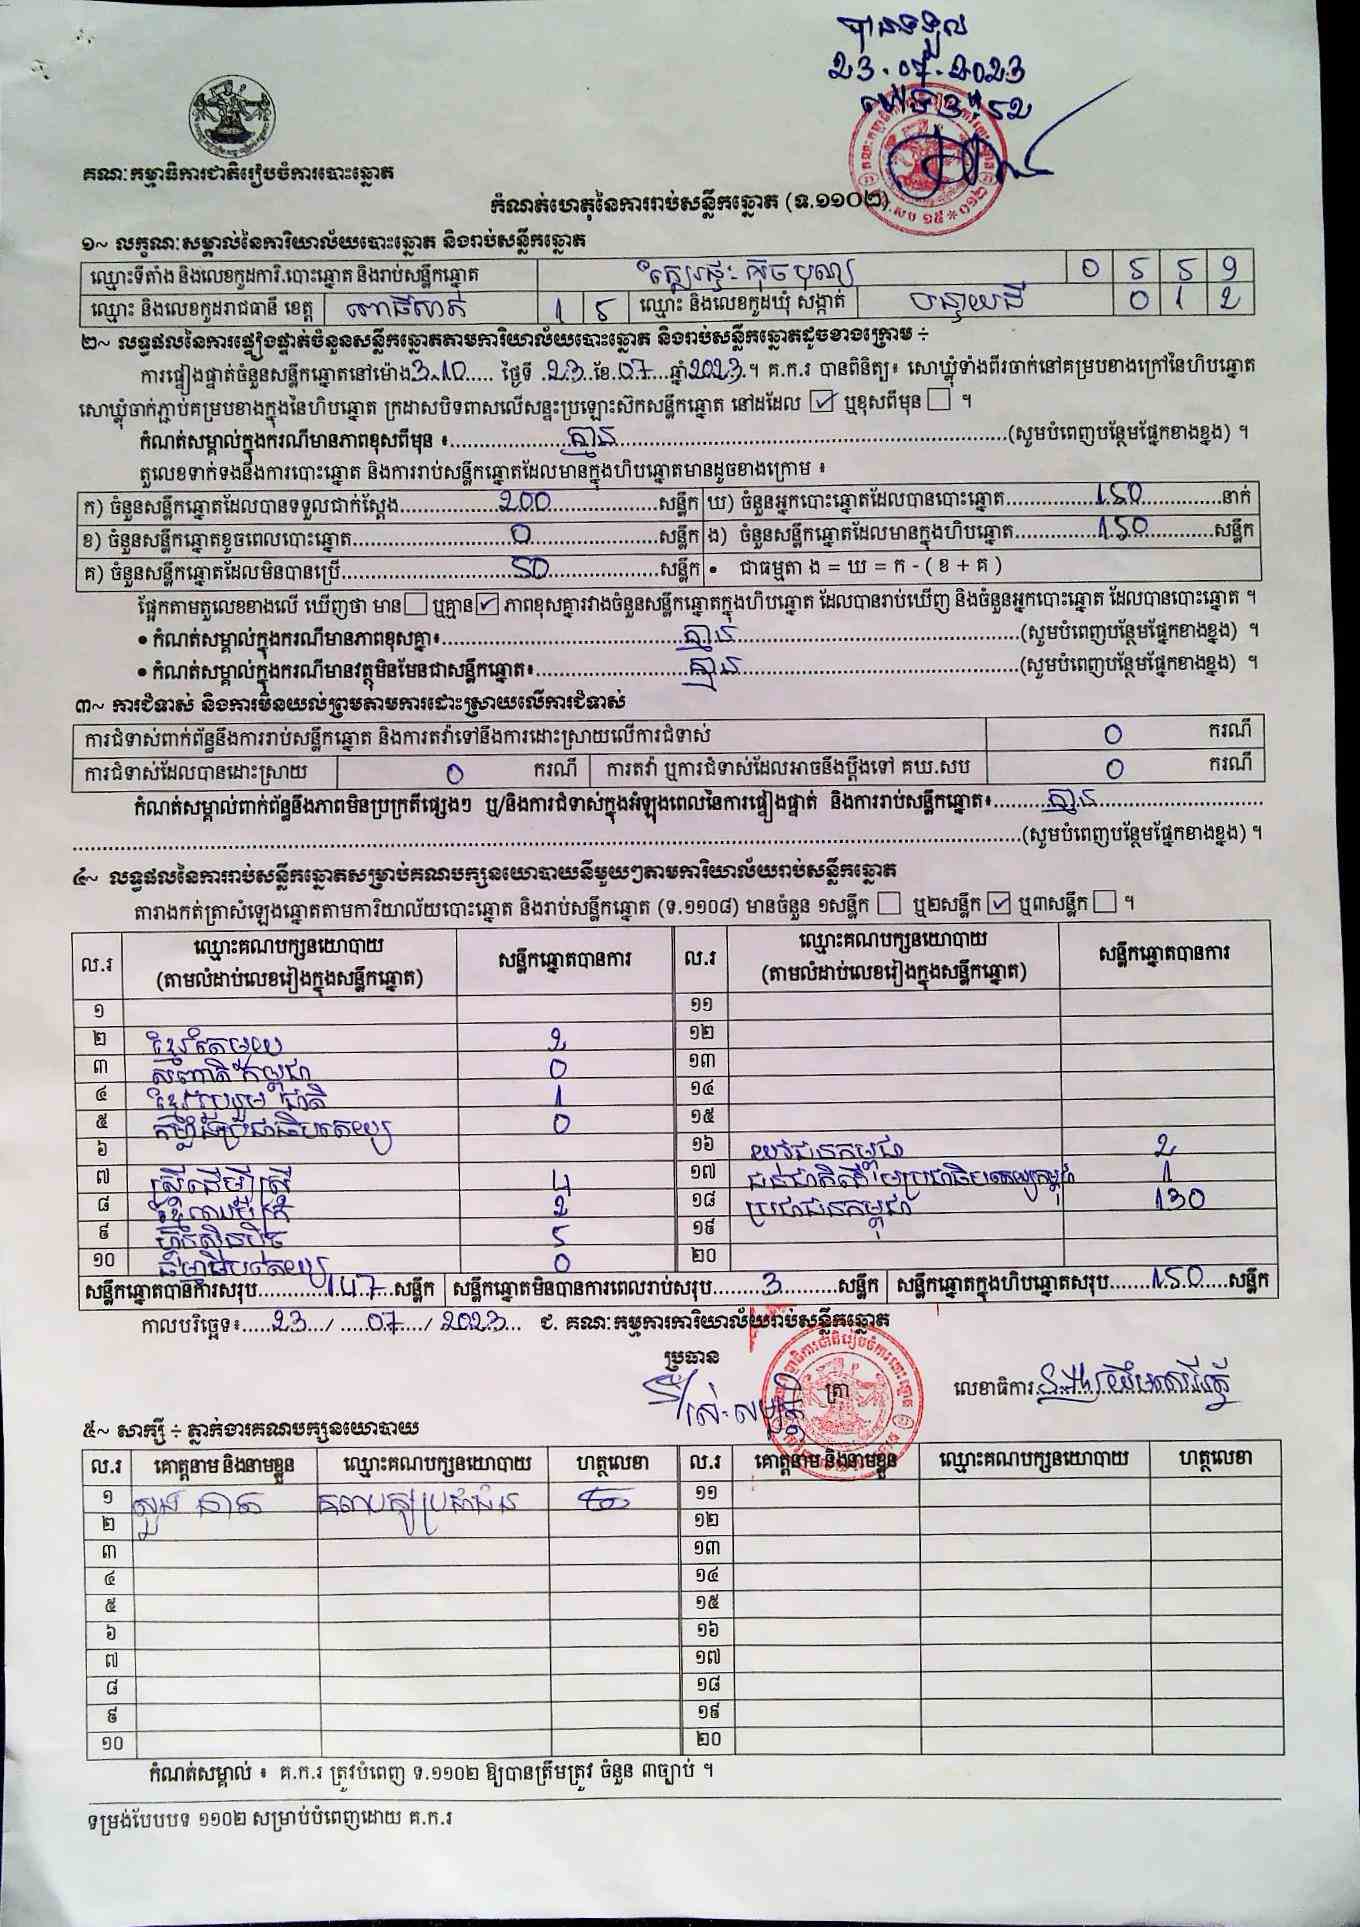 បានទទួល
23.07.2023
គណៈកម្មាធិការជាតិរៀបចំការបោះឆ្នោត
កំណត់ហេតុនៃការរាប់សន្លឹកឆ្នោត (ទ.១១០២)
១~ លក្ខណៈសម្គាល់នៃការិយាល័យបោះឆ្នោត និងរាប់សន្លឹកឆ្នោត
ឈ្មោះទីតាំង និងលេខកូដការិ.បោះឆ្នោត និងរាប់សន្លឹកឆ្នោត 0 5 5 9
ឈ្មោះ និងលេខកូដរាជធានី ខេត្ត ពោធិ៍សាត់ 1 5 ឈ្មោះ និងលេខកូដឃុំ សង្កាត់ 0 1 2
២~ លទ្ធផលនៃការផ្ទៀងផ្ទាត់ចំនួនសន្លឹកឆ្នោតតាមការិយាល័យបោះឆ្នោត និងរាប់សន្លឹកឆ្នោតដូចខាងក្រោម ÷
ការផ្ទៀងផ្ទាត់ចំនួនសន្លឹកឆ្នោតនៅម៉ោង 3.10 ថ្ងៃទី 23 ខែ 07 ឆ្នាំ 2023 ។ គ.ក.រ បានពិនិត្យ៖ សោឃ្លុំទាំងពីរចាក់នៅគម្របខាងក្រៅនៃហិបឆ្នោត
សោឃ្លុំចាក់ភ្ជាប់គម្របខាងក្នុងនៃហិបឆ្នោត ក្រដាសបិទពាសលើសន្ទះប្រឡោះស៊កសន្លឹកឆ្នោត នៅដដែល ☑ ឬខុសពីមុន ☐ ។
កំណត់សម្គាល់ក្នុងករណីមានភាពខុសពីមុន ៖ គ្មាន (សូមបំពេញបន្ថែមផ្នែកខាងខ្នង) ។
តួលេខទាក់ទងនឹងការបោះឆ្នោត និងការរាប់សន្លឹកឆ្នោតដែលមានក្នុងហិបឆ្នោតមានដូចខាងក្រោម ៖
ក) ចំនួនសន្លឹកឆ្នោតដែលបានទទួលជាក់ស្តែង 200 សន្លឹក ឃ) ចំនួនអ្នកបោះឆ្នោតដែលបានបោះឆ្នោត 150 នាក់
ខ) ចំនួនសន្លឹកឆ្នោតខូចពេលបោះឆ្នោត 0 សន្លឹក ង) ចំនួនសន្លឹកឆ្នោតដែលមានក្នុងហិបឆ្នោត 150 សន្លឹក
គ) ចំនួនសន្លឹកឆ្នោតដែលមិនបានប្រើ 50 សន្លឹក • ជាធម្មតា ង = ឃ = ក - ( ខ + គ )
ផ្អែកតាមតួលេខខាងលើ ឃើញថា មាន ☐ ឬគ្មាន ☑ ភាពខុសគ្នារវាងចំនួនសន្លឹកឆ្នោតក្នុងហិបឆ្នោត ដែលបានរាប់ឃើញ និងចំនួនអ្នកបោះឆ្នោត ដែលបានបោះឆ្នោត ។
• កំណត់សម្គាល់ក្នុងករណីមានភាពខុសគ្នា៖ គ្មាន (សូមបំពេញបន្ថែមផ្នែកខាងខ្នង) ។
• កំណត់សម្គាល់ក្នុងករណីមានវត្ថុមិនមែនជាសន្លឹកឆ្នោត៖ គ្មាន (សូមបំពេញបន្ថែមផ្នែកខាងខ្នង) ។
៣~ ការជំទាស់ និងការមិនយល់ព្រមតាមការដោះស្រាយលើការជំទាស់
ការជំទាស់ពាក់ព័ន្ធនឹងការរាប់សន្លឹកឆ្នោត និងការតវ៉ាទៅនឹងការដោះស្រាយលើការជំទាស់ 0 ករណី
ការជំទាស់ដែលបានដោះស្រាយ 0 ករណី ការតវ៉ា ឬការជំទាស់ដែលអាចនឹងប្តឹងទៅ គឃ.សប 0 ករណី
កំណត់សម្គាល់ពាក់ព័ន្ធនឹងភាពមិនប្រក្រតីផ្សេងៗ ឬ/និងការជំទាស់ក្នុងអំឡុងពេលនៃការផ្ទៀងផ្ទាត់ និងការរាប់សន្លឹកឆ្នោត៖ គ្មាន
(សូមបំពេញបន្ថែមផ្នែកខាងខ្នង) ។
៤~ លទ្ធផលនៃការរាប់សន្លឹកឆ្នោតសម្រាប់គណបក្សនយោបាយនីមួយៗតាមការិយាល័យរាប់សន្លឹកឆ្នោត
តារាងកត់ត្រាសំឡេងឆ្នោតតាមការិយាល័យបោះឆ្នោត និងរាប់សន្លឹកឆ្នោត (ទ.១១០៨) មានចំនួន ១សន្លឹក ☐ ឬ២សន្លឹក ☑ ឬ៣សន្លឹក ☐ ។
ល.រ ឈ្មោះគណបក្សនយោបាយ (តាមលំដាប់លេខរៀងក្នុងសន្លឹកឆ្នោត) សន្លឹកឆ្នោតបានការ ល.រ ឈ្មោះគណបក្សនយោបាយ (តាមលំដាប់លេខរៀងក្នុងសន្លឹកឆ្នោត) សន្លឹកឆ្នោតបានការ
១ ១១
២ ខ្មែរតែមួយ 2 ១២
៣ សញ្ជាតិកម្ពុជា 0 ១៣
៤ ខ្មែររួបរួមជាតិ 1 ១៤
៥ កម្លាំងប្រជាធិបតេយ្យ 0 ១៥
៦ ១៦ យុវជនកម្ពុជា 2
៧ ស្រីដើម្បីស្រី 4 ១៧ ជនជាតិដើមប្រជាធិបតេយ្យកម្ពុជា 1
៨ 2 ១៨ ប្រជាជនកម្ពុជា 130
៩ ហ្វ៊ុនស៊ិនប៉ិច 5 ១៩
១០ ធម្មាធិបតេយ្យ 0 ២០
សន្លឹកឆ្នោតបានការសរុប 147 សន្លឹក សន្លឹកឆ្នោតមិនបានការពេលរាប់សរុប 3 សន្លឹក សន្លឹកឆ្នោតក្នុងហិបឆ្នោតសរុប 150 សន្លឹក
កាលបរិច្ឆេទ៖ 23 / 07 / 2023 ជ. គណៈកម្មការការិយាល័យរាប់សន្លឹកឆ្នោត
ប្រធាន ត្រា លេខាធិការ
៥~ សាក្សី ÷ ភ្នាក់ងារគណបក្សនយោបាយ
ល.រ គោត្តនាម និងនាមខ្លួន ឈ្មោះគណបក្សនយោបាយ ហត្ថលេខា ល.រ គោត្តនាម និងនាមខ្លួន ឈ្មោះគណបក្សនយោបាយ ហត្ថលេខា
១ គណបក្សប្រជាជន ១១
២ ១២
៣ ១៣
៤ ១៤
៥ ១៥
៦ ១៦
៧ ១៧
៨ ១៨
៩ ១៩
១០ ២០
កំណត់សម្គាល់ ៖ គ.ក.រ ត្រូវបំពេញ ទ.១១០២ ឱ្យបានត្រឹមត្រូវ ចំនួន ៣ច្បាប់ ។
ទម្រង់បែបបទ ១១០២ សម្រាប់បំពេញដោយ គ.ក.រ